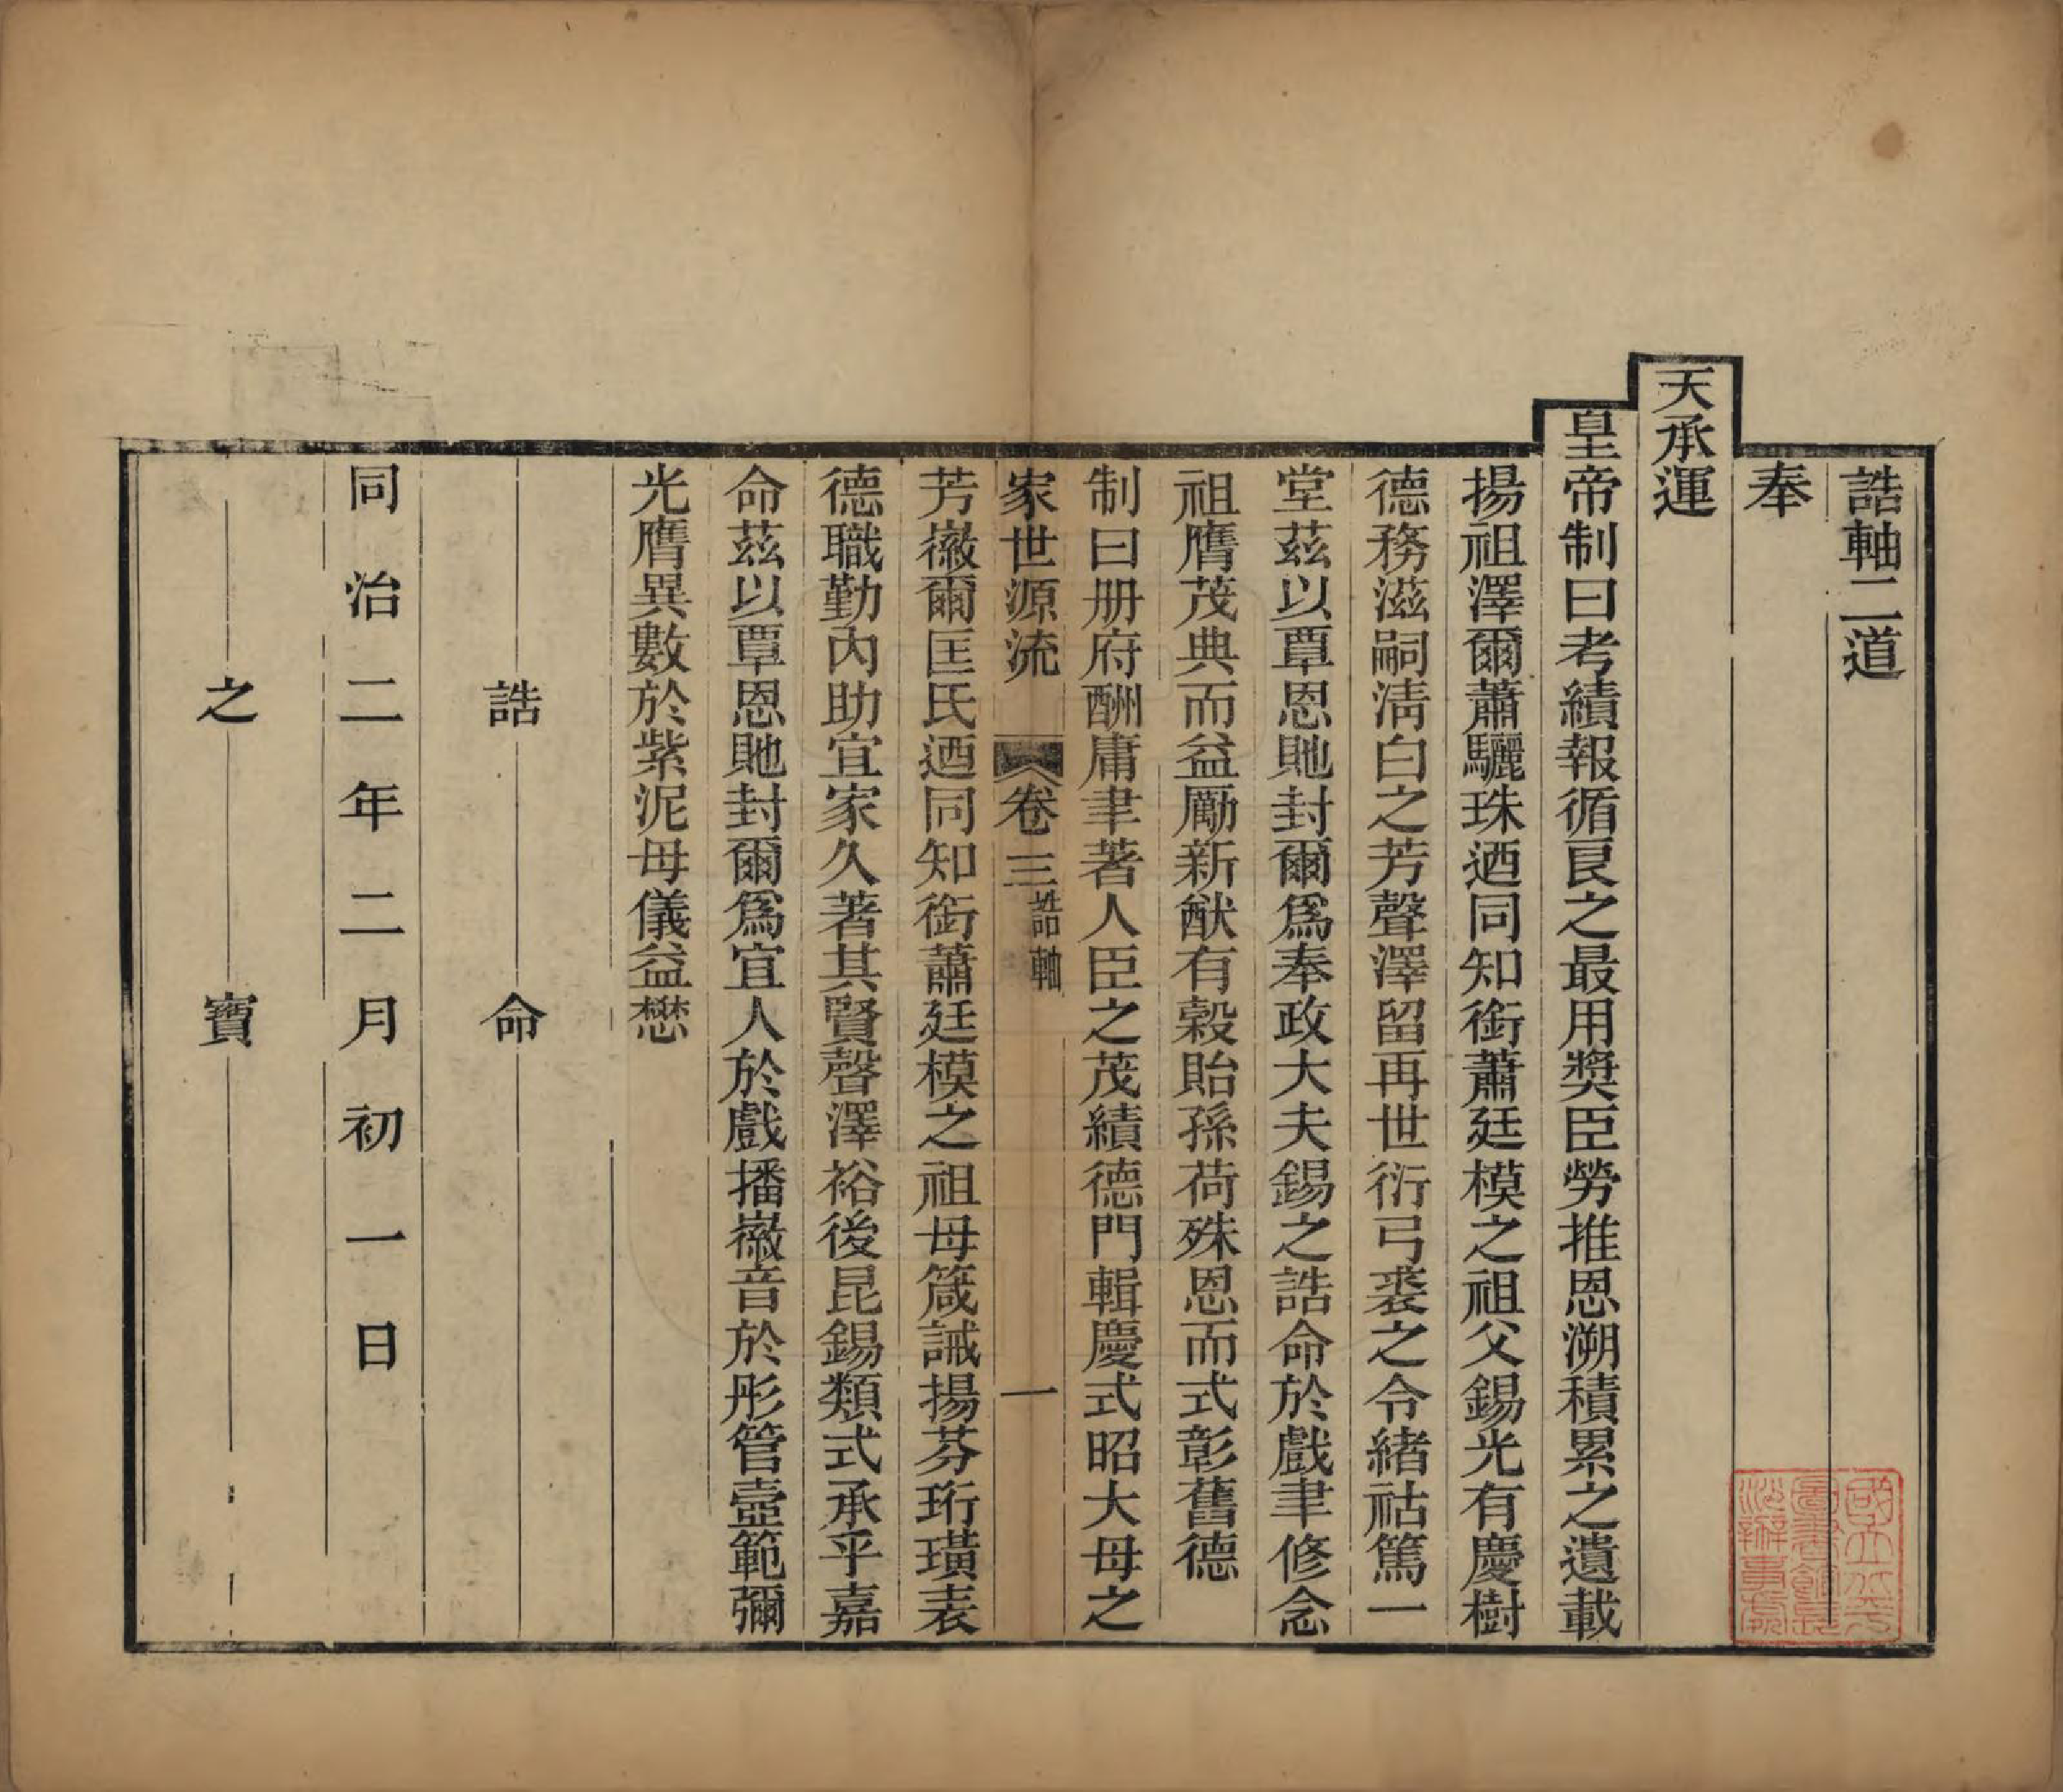 誥軸二道
奉
天承運
皇帝制曰考績報循良之最用獎臣勞推恩溯積累之遺載
揚祖澤爾蕭驪珠迺同知銜蕭廷模之祖父錫光有慶樹
德務滋嗣淸白之芳聲澤留再世衍弓裘之令緒祜篤一
堂茲以覃恩貤封爾爲奉政大夫錫之誥命於戲聿修念
祖膺茂典而益勵新猷有穀貽孫荷殊恩而式彰舊德
制曰册府酬庸聿著人臣之茂績德門輯慶式昭大母之
家世源流 卷三 誥軸 一
芳徽爾匡氏迺同知銜蕭廷模之祖母箴誡揚芬珩璜表
德職勤內助宜家久著其賢聲澤裕後昆錫類式承乎嘉
命茲以覃恩貤封爾爲宜人於戲播徽音於彤管壼範彌
光膺異數於紫泥母儀益懋
誥命
同治二年二月初一日
之寶
國立北平
圖書館長
沙辦事處